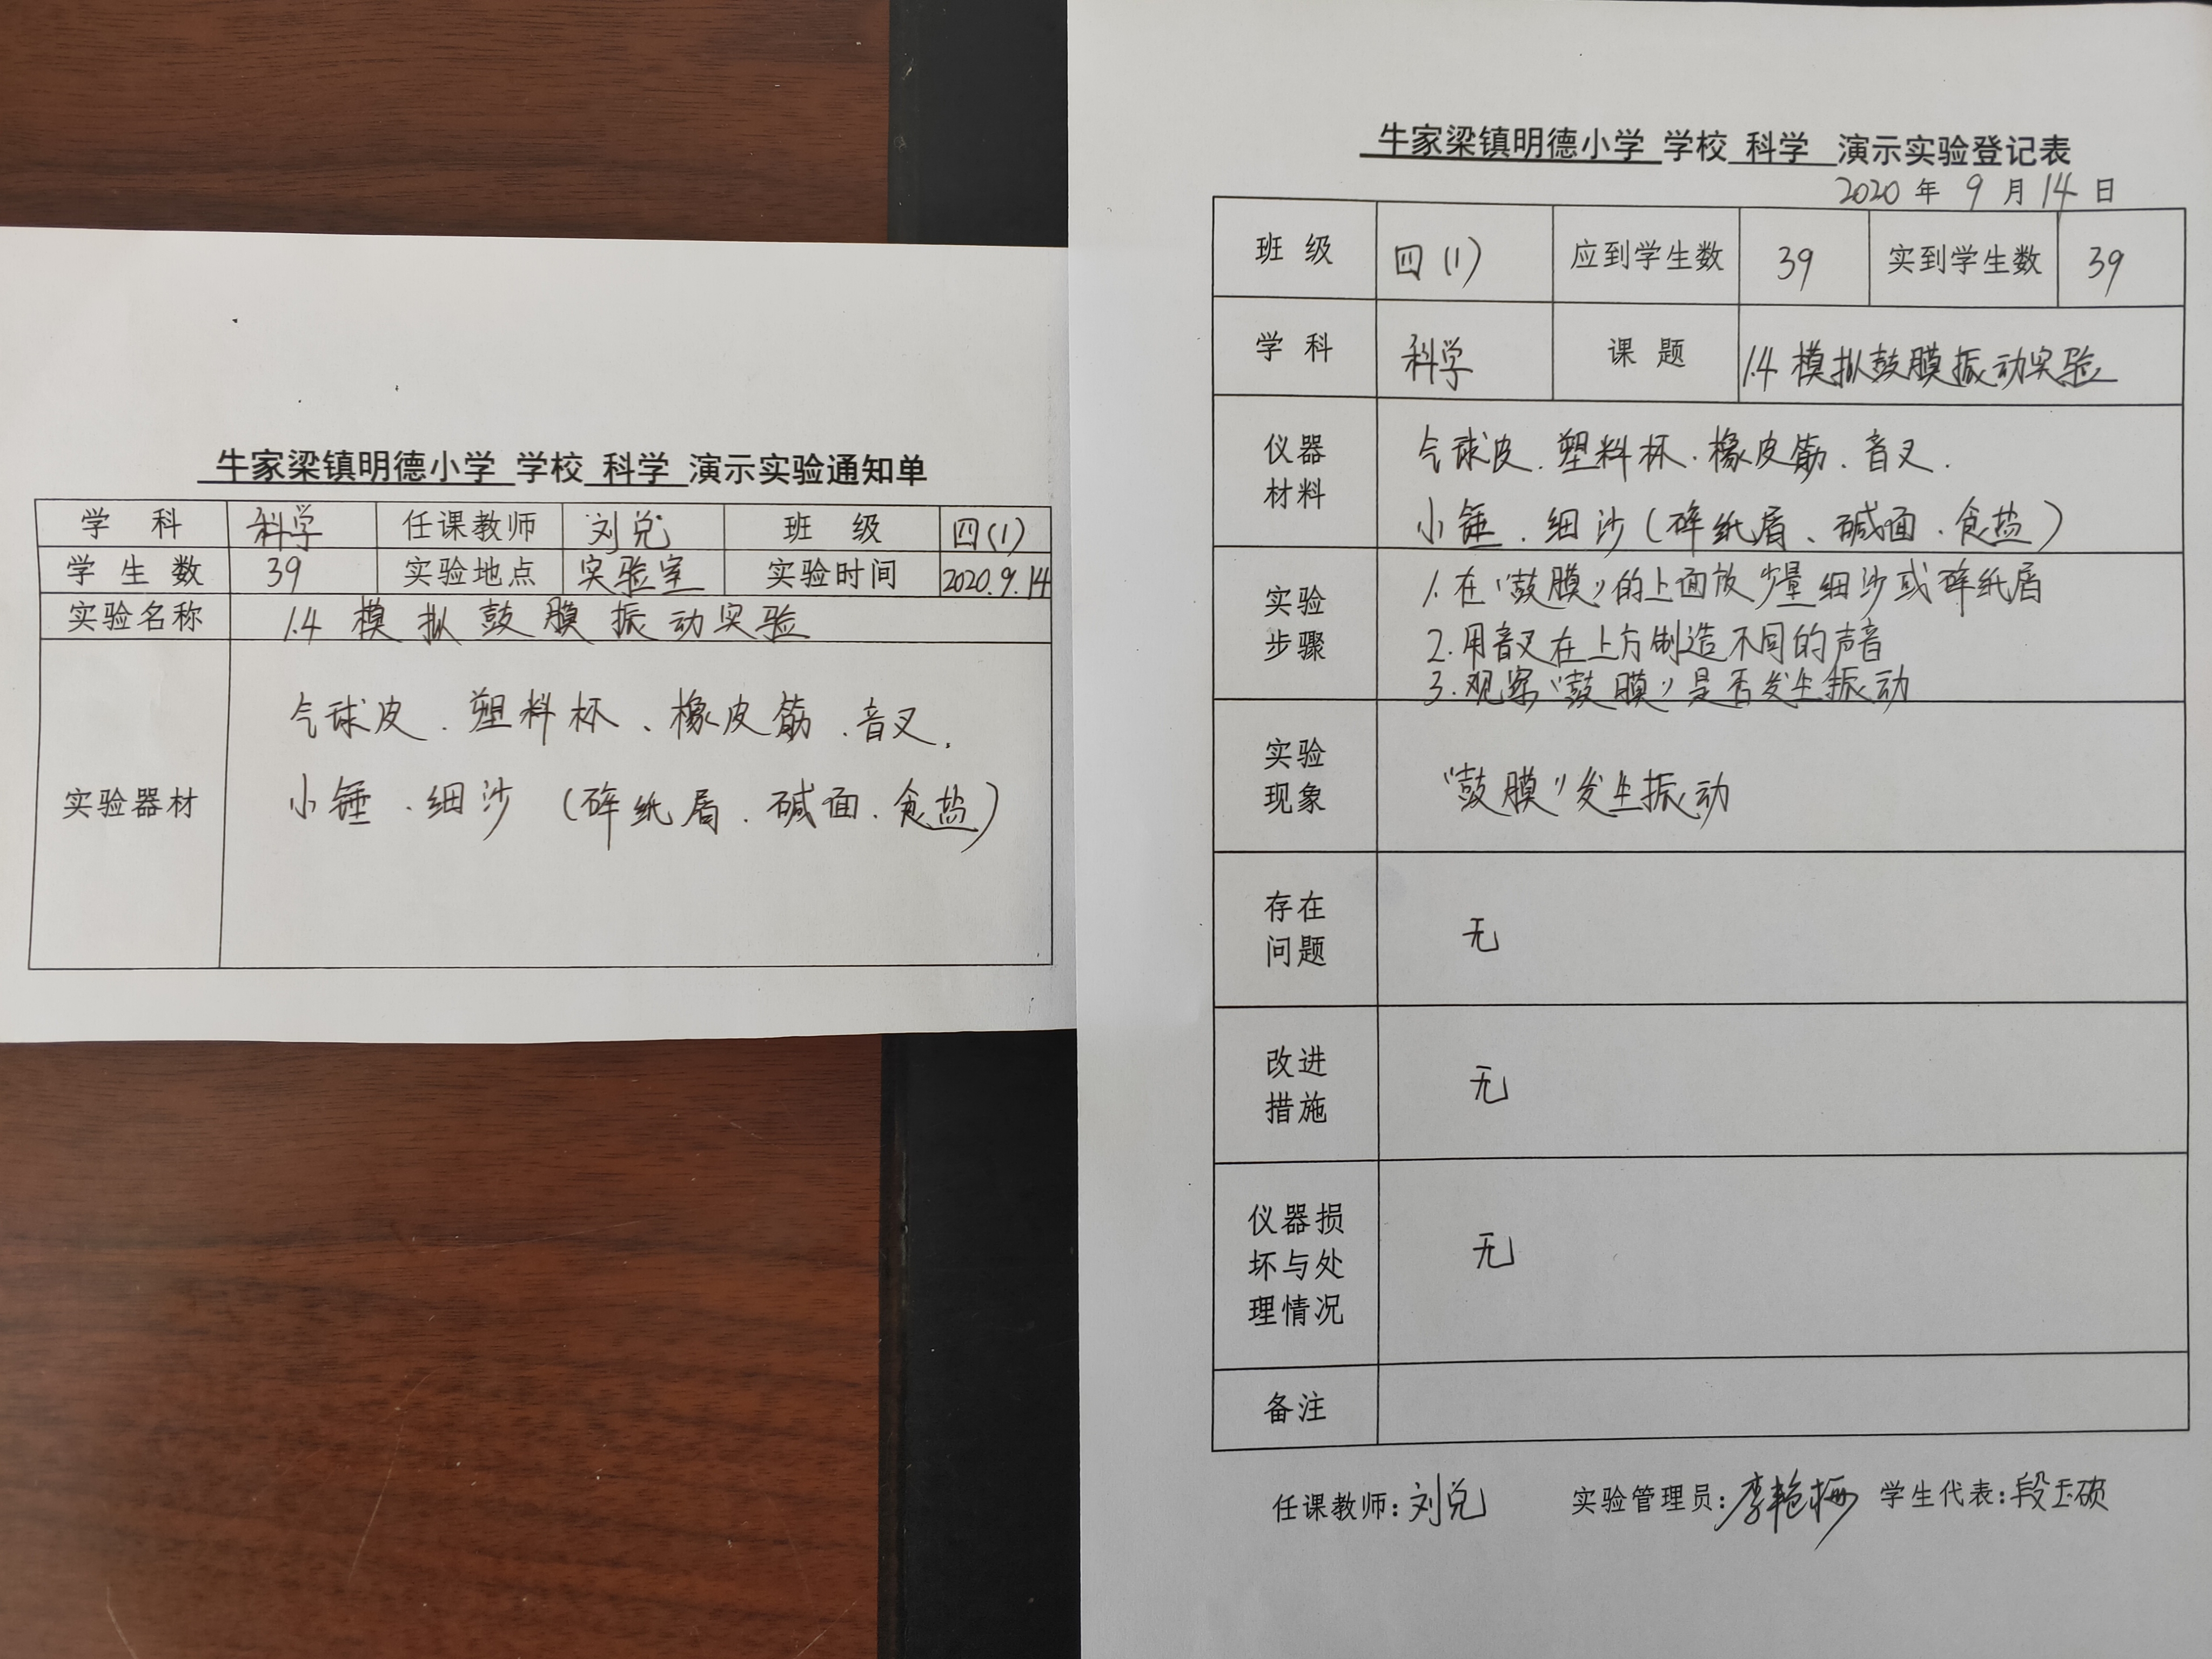 牛家梁镇明德小学 学校 科学 演示实验通知单
学 科 科学 任课教师 刘兑 班 级 四(1)
学 生 数 39 实验地点 实验室 实验时间 2020.9.14
实验名称 1.4 模拟鼓膜振动实验
实验器材
气球皮、塑料杯、橡皮筋、音叉、
小锤、细沙(碎纸屑、碱面、食盐)
牛家梁镇明德小学 学校 科学 演示实验登记表
2020 年 9 月 14 日
班 级 四(1) 应到学生数 39 实到学生数 39
学 科 科学 课 题 1.4 模拟鼓膜振动实验
仪器
材料
气球皮、塑料杯、橡皮筋、音叉.
小锤、细沙(碎纸屑、碱面、食盐)
实验
步骤
1.在“鼓膜”的上面放少量细沙或碎纸屑
2.用音叉在上方制造不同的声音
3.观察“鼓膜”是否发生振动
实验
现象
“鼓膜”发生振动
存在
问题
无
改进
措施
无
仪器损
坏与处
理情况
无
备注
任课教师:刘兑 实验管理员:李艳梅 学生代表:段玉硕